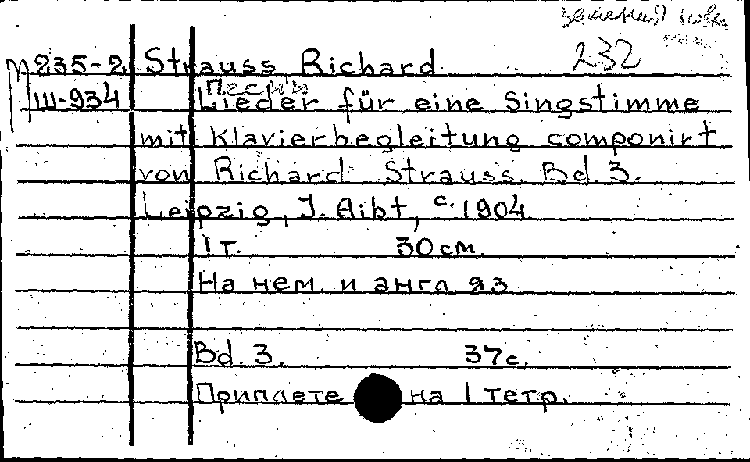 232
235-2 Strauss Richard
Песни
Ш-934 Lieder für eine Singstimme
mit Klavierbegleitung componirt
von Richard Strauss. Bd. 3.
Leipzig, J. Aibt, c. 1904
1 т. 30 см.
На нем. и англ яз
Bd. 3. 37 с.
Приплете на 1 тетр.